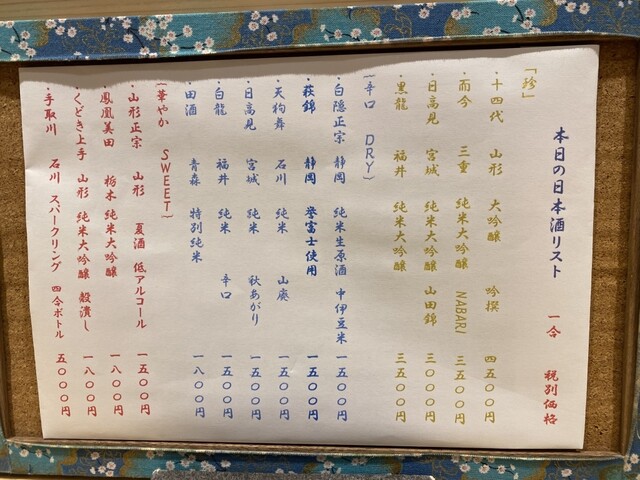 本日の日本酒リスト　一合　税別価格
「珍」
・十四代　山形　大吟醸　吟撰　四五〇〇円
・而今　三重　純米大吟醸　NABARI　三五〇〇円
・日高見　宮城　純米大吟醸　山田錦　三〇〇〇円
・黒龍　福井　純米大吟醸　三五〇〇円
(辛口　DRY)
・白隠正宗　静岡　純米生原酒　中伊豆米　一五〇〇円
・萩錦　静岡　誉富士使用　一五〇〇円
・天狗舞　石川　純米　山廃　一五〇〇円
・日高見　宮城　純米　秋あがり　一五〇〇円
・白龍　福井　純米　辛口　一五〇〇円
・田酒　青森　特別純米　一八〇〇円
(華やか　SWEET)
・山形正宗　山形　夏酒　低アルコール　一五〇〇円
・鳳凰美田　栃木　純米大吟醸　一八〇〇円
・くどき上手　山形　純米大吟醸　穀潰し　一八〇〇円
・手取川　石川　スパークリング　四合ボトル　五〇〇〇円